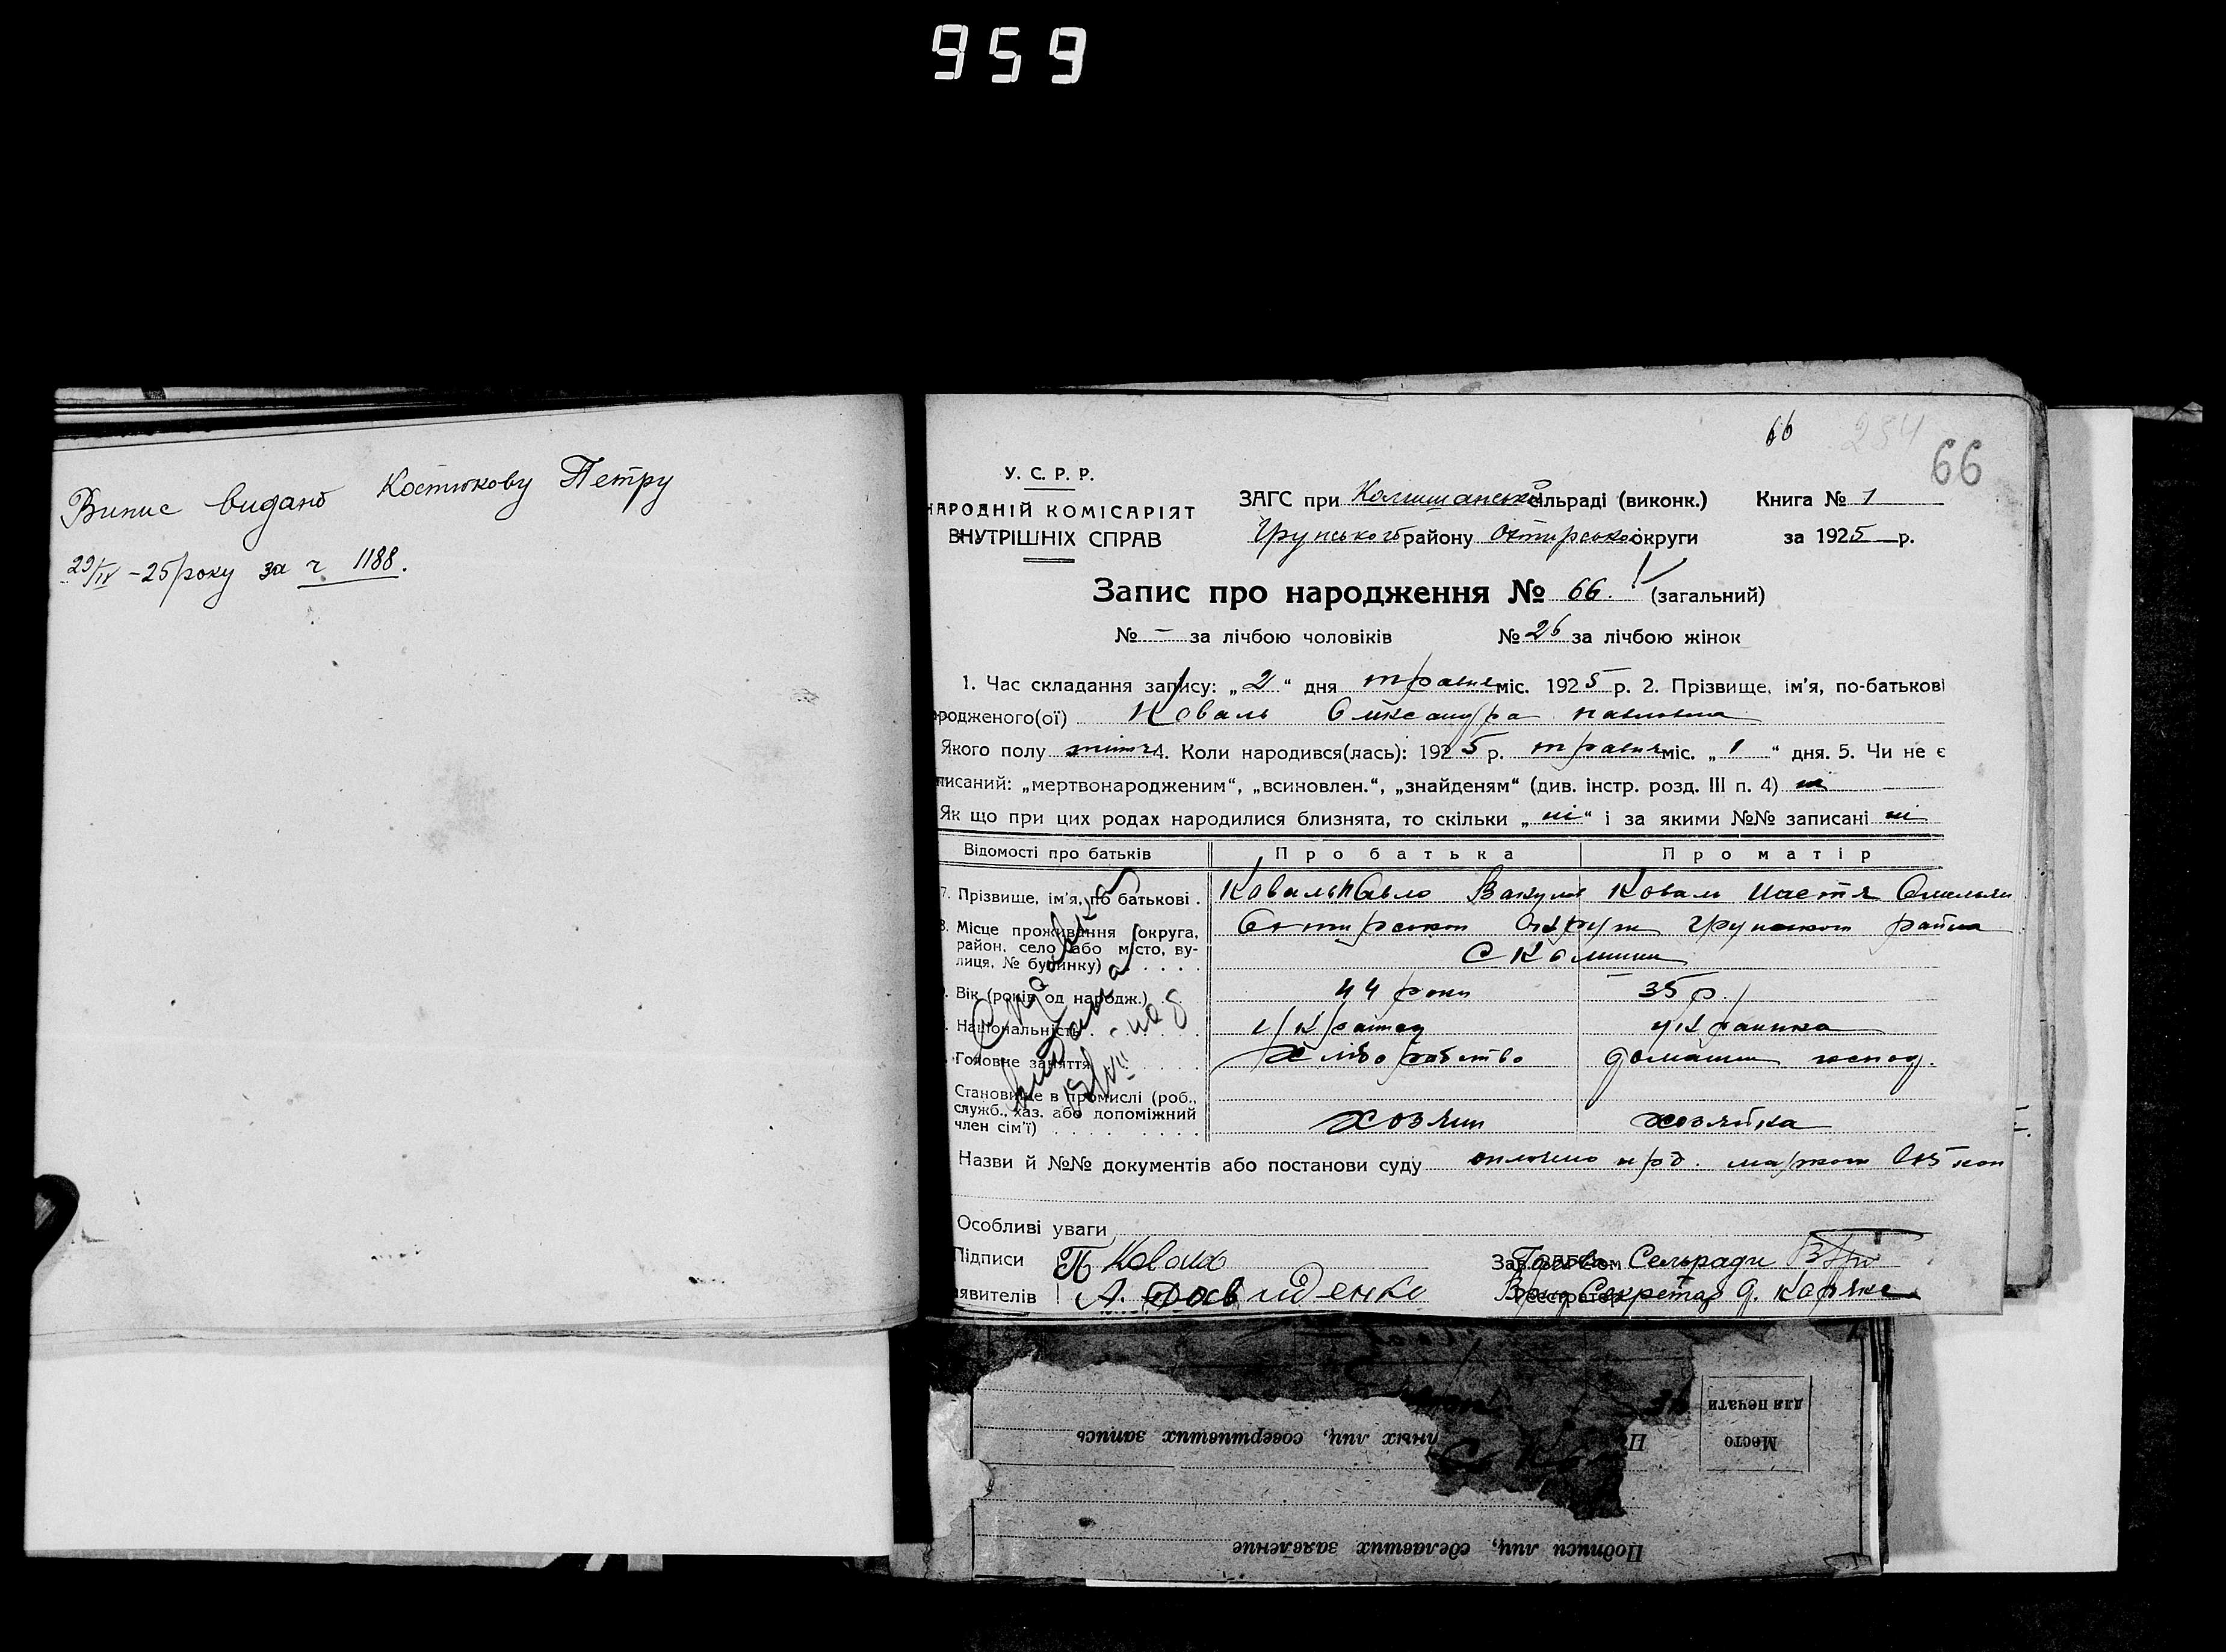 959
Випис видано Костюкову Петру
29/IV – 25 року за ч 1188.
66 254 66
У. С. Р. Р.
НАРОДНІЙ КОМІСАРІЯТ
ВНУТРІШНІХ СПРАВ
ЗАГС при сільраді (виконк.) Книга № 1
Грунського району Охтирської округи за 1925 р.
Запис про народження № 66. (загальний)
№ – за лічбою чоловіків № 26 за лічбою жінок
1. Час складання запису: „2“ дня травня міс. 1925 р. 2. Прізвище, ім'я, по-батькові
родженого(ої) Коваль Олександра Павловна
Якого полу жіноч 4. Коли народився(лась): 1925 р. травня міс. „1“ дня. 5. Чи не є
писаний: „мертвонародженим“, „всиновлен.“, „знайденям“ (див. інстр. розд. III п. 4) ні
Як що при цих родах народилися близнята, то скільки „ні“ і за якими №№ записані ні
Відомості про батьків Про батька Про матір
7. Прізвище, ім'я, по батькові . Коваль Павло Вакулов Коваль Настя Омельян
8. Місце проживання (округа, Охтирської Округи Грунського района
район, село або місто, ву-
лиця, № будинку) . . . . . С Коломиці
Вік (років од народж.) . 44 роки 35 р.
Національність . . . . українец українка
Головне заняття . . . . хліборобство домашнє господ.
Становище в промислі (роб.,
служб., хаз. або допоміжний
член сім'ї) . . . . . . . хозяин хозяйка
Справка
видана
Назви й №№ документів або постанови суду оплочено маркою 5 коп
Особливі уваги
Підписи П Коваль Зав. ЗАГС'ом Голова Сельради
явителів А. Давиденко Реєстратор Секретар
Место
для печати
лиц, совершивших запись
Подписи лиц, сделавших заявление